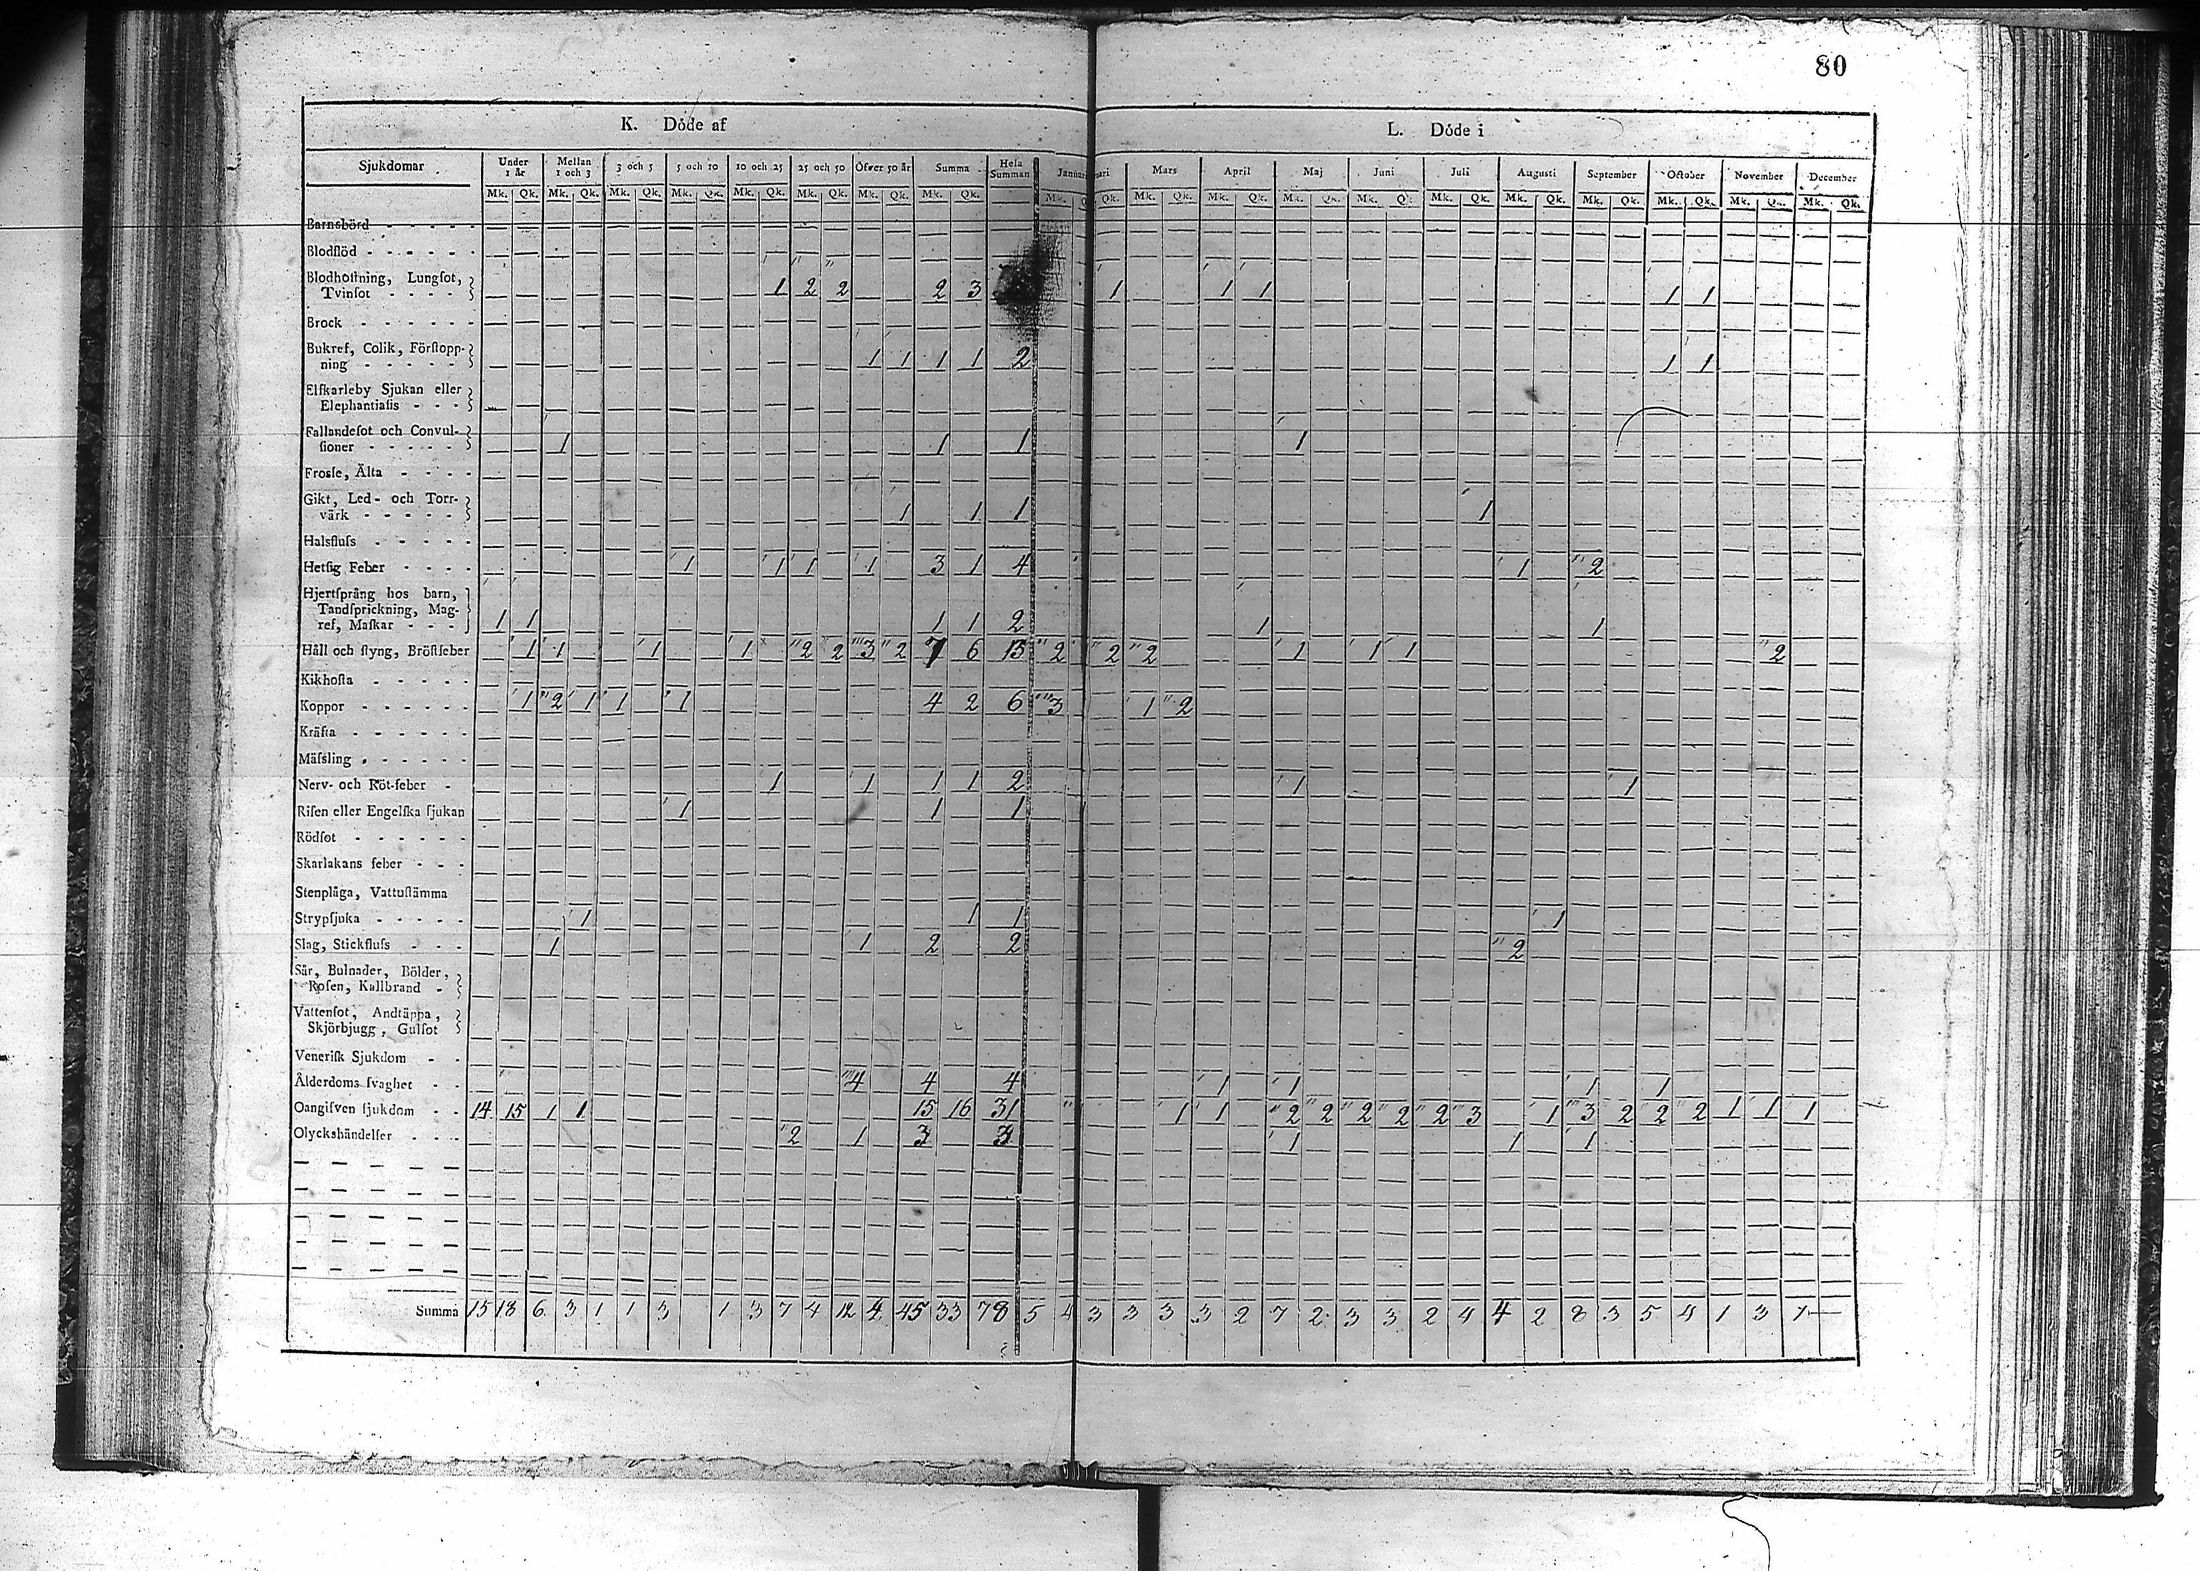 80
K. Döde af
L. Döde i
Sjukdomar Under 1 år Mellan 1 och 3 3 och 5 5 och 10 10 och 25 25 och 50 Öfver 50 år Summa Hela Summan Mars April Maj Juni Juli Augusti September October November December
Mk. Qk. Mk. Qk. Mk. Qk. Mk. Qk. Mk. Qk. Mk. Qk. Mk. Qk. Mk. Qk. Mk. Qk. Mk. Qk. Mk. Qk. Mk. Qk. Mk. Qk. Mk. Qk. Mk. Qk. Mk. Qk. Mk. Qk. Mk. Qk. Mk. Qk.
Barnsbörd - - - -
Blodflöd - - - - - -
Blodhoſtning, Lungſot,
Tvinſot - - - - 1 2 2 2 3 1 1 1 1 1
Brock - - - - - -
Bukref, Colik, Förſtopp-
ning - - - - - 1 1 1 1 2 1 1
Elfkarleby Sjukan eller
Elephantiaſis - - -
Fallandeſot och Convul-
ſioner - - - - - 1 1 1 1
Froſſe, Älta - - - -
Gikt, Led- och Torr-
värk - - - - - 1 1 1 1
Halsfluſs - - - - -
Hetſig Feber - - - - 1 1 1 1 3 1 4 1 2
Hjertſprång hos barn,
Tandſprickning, Mag-
ref, Maſkar - - - 1 1 1 1 2 1 1
Håll och ſtyng, Bröſtfeber 1 1 1 1 2 2 3 2 7 6 13 2 2 2 1 1 1 2
Kikhoſta - - - - -
Koppor - - - - - - 1 2 1 1 1 4 2 6 3 1 2
Kräfta - - - - - -
Mäſsling - - - - - -
Nerv- och Röt-feber - 1 1 1 1 2 1 1
Riſen eller Engelſka ſjukan 1 1 1
Rödſot - - - - - -
Skarlakans feber - - -
Stenplåga, Vattuſtämma
Strypſjuka - - - - - 1 1 1 1
Slag, Stickfluſs - - - 1 1 2 2 2
Sår, Bulnader, Bölder,
Roſen, Kallbrand -
Vattenſot, Andtäppa,
Skjörbjugg, Gulſot
Veneriſk Sjukdom - -
Ålderdoms ſvaghet - - 4 4 4 1 1 1 1
Oangifven ſjukdom - - 14 15 1 1 15 16 31 1 1 2 2 2 2 2 3 1 3 2 2 2 1 1 1
Olyckshändelſer - - - 2 1 3 3 1 1 1
Summa 15 18 6 3 1 1 3 1 3 7 4 12 4 45 33 78 5 4 3 3 3 3 2 7 2 3 3 2 4 4 2 8 3 5 4 1 3 1